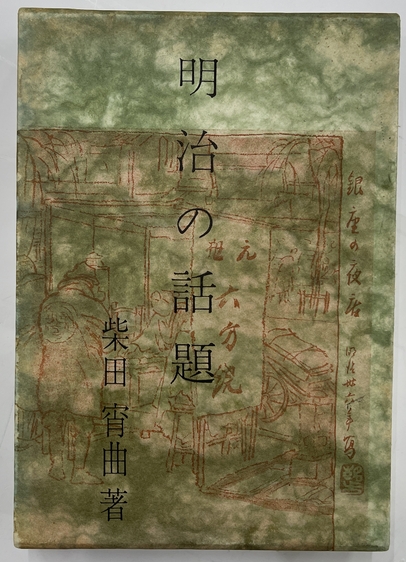 明治の話題
柴田宵曲著
銀座の夜店
明治卅六年写
元祖
六方焼